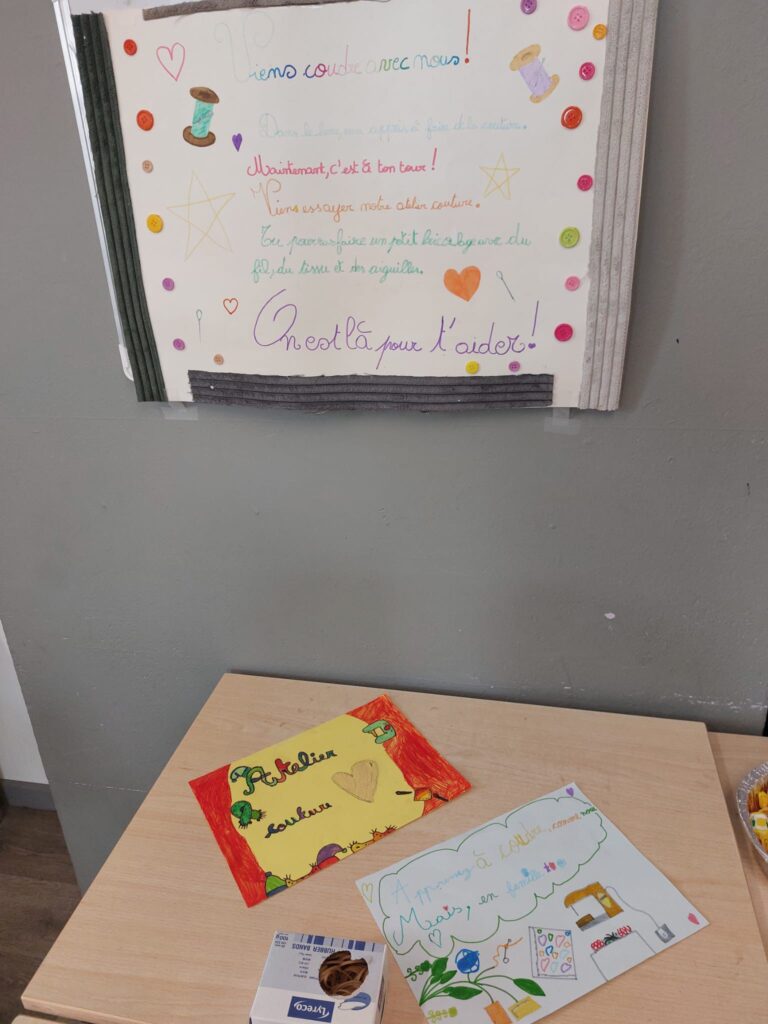 Viens coudre avec nous!
Dans le livre, on appris à faire de la couture.
Maintenant, c'est à ton tour!
Viens essayer notre atelier couture.
Tu pourras faire un petit bricolage avec du
fil, du tissu et des aiguilles.
On est là pour t'aider!
Atelier
couture
Apprenez à coudre, comme nous
Mais, en famille
RUBBER BANDS
100g
Lyreco